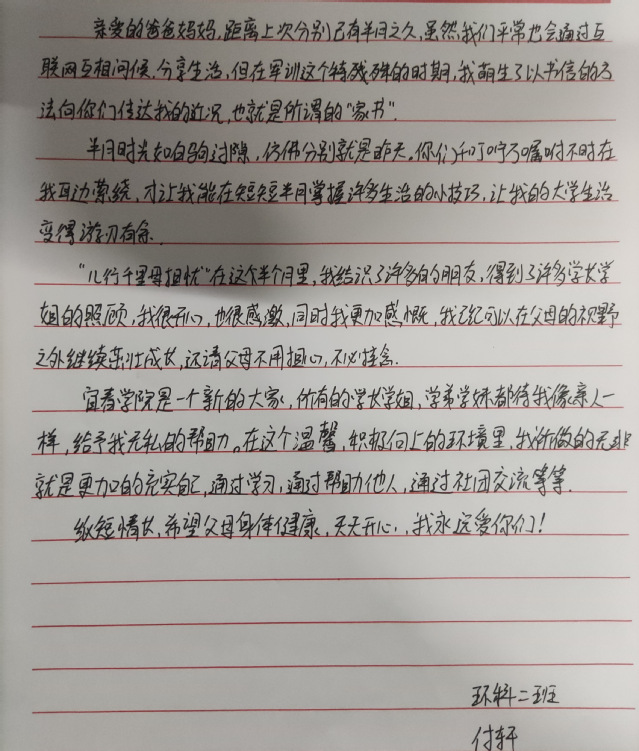 亲爱的爸爸妈妈,距离上次分别已有半月之久,虽然我们平常也会通过互
联网互相问候,分享生活,但在军训这个特殊的时期,我萌生了以书信的方
法向你们传达我的近况,也就是所谓的“家书”.
半月时光如白驹过隙,仿佛分别就是昨天,你们千叮咛万嘱咐不时在
我耳边萦绕,才让我能在短短半月掌握许多生活的小技巧,让我的大学生活
变得游刃有余.
“儿行千里母担忧”在这个半个月里,我结识了许多的朋友,得到了许多学长学
姐的照顾,我很开心,也很感激,同时我更加感慨,我已经可以在父母的视野
之外继续茁壮成长,还请父母不用担心,不必挂念.
宜春学院是一个新的大家,所有的学长学姐,学弟学妹都待我像亲人一
样,给予我无私的帮助。在这个温馨,积极向上的环境里,我所做的无非
就是更加的充实自己,通过学习,通过帮助他人,通过社团交流等等.
纸短情长,希望父母身体健康,天天开心,我永远爱你们!
环科二班
付轩